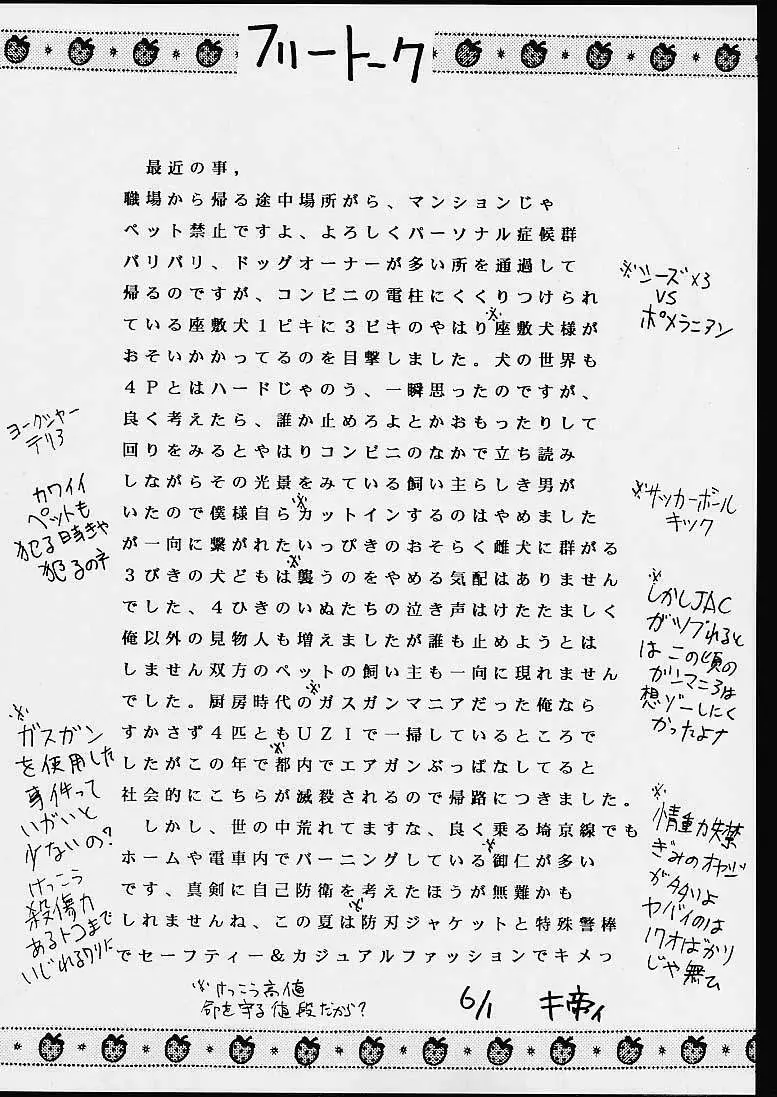 フリートーク
最近の事，
職場から帰る途中場所がら、マンションじゃ
ペット禁止ですよ、よろしくパーソナル症候群
パリパリ、ドッグオーナーが多い所を通過して
帰るのですが、コンビニの電柱にくくりつけられ
ている座敷犬１ピキに３ピキのやはり※座敷犬様が
おそいかかってるのを目撃しました。犬の世界も
４Ｐとはハードじゃのう、一瞬思ったのですが、
良く考えたら、誰か止めろよとかおもったりして
回りをみるとやはりコンビニのなかで立ち読み
しながらその光景をみている飼い主らしき男が
いたので僕様自ら※カットインするのはやめました
が一向に繋がれたいっぴきのおそらく雌犬に群がる
３びきの犬どもは※襲うのをやめる気配はありません
でした、４ひきのいぬたちの泣き声はけたたましく
俺以外の見物人も増えましたが誰も止めようとは
しません双方のペットの飼い主も一向に現れません
でした。厨房時代の※ガスガンマニアだった俺なら
すかさず４匹ともＵＺＩで一掃しているところで
したがこの年で※都内でエアガンぶっぱなしてると
社会的にこちらが滅殺されるので帰路につきました。
しかし、世の中荒れてますな、良く乗る埼京線でも
ホームや電車内でバーニングしている※御仁が多い
です、真剣に自己防衛を考えたほうが無難かも
しれませんね、この夏は※防刃ジャケットと特殊警棒
でセーフティー＆カジュアルファッションでキメっ
※シーズ×3
VS
ポメラニアン
ヨークシャー
テリア
カワイイ
ペットも
犯る時きゃ
犯るのネ
※サッカーボール
キック
※
しかしJAC
がツブれると
は この頃の
ガンマニアは
想ゾーしにく
かったよナ
※
ガスガン
を使用した
事件って
いがいと
少ないの?
けっこう
殺傷力
あるトコまで
いじれるワリに
※
情重力失禁
ぎみのオヤジ
が多いよ
ヤバイのは
17才ばかり
じゃ無ひ
※けっこう高値
命を守る値段だから?
6/1